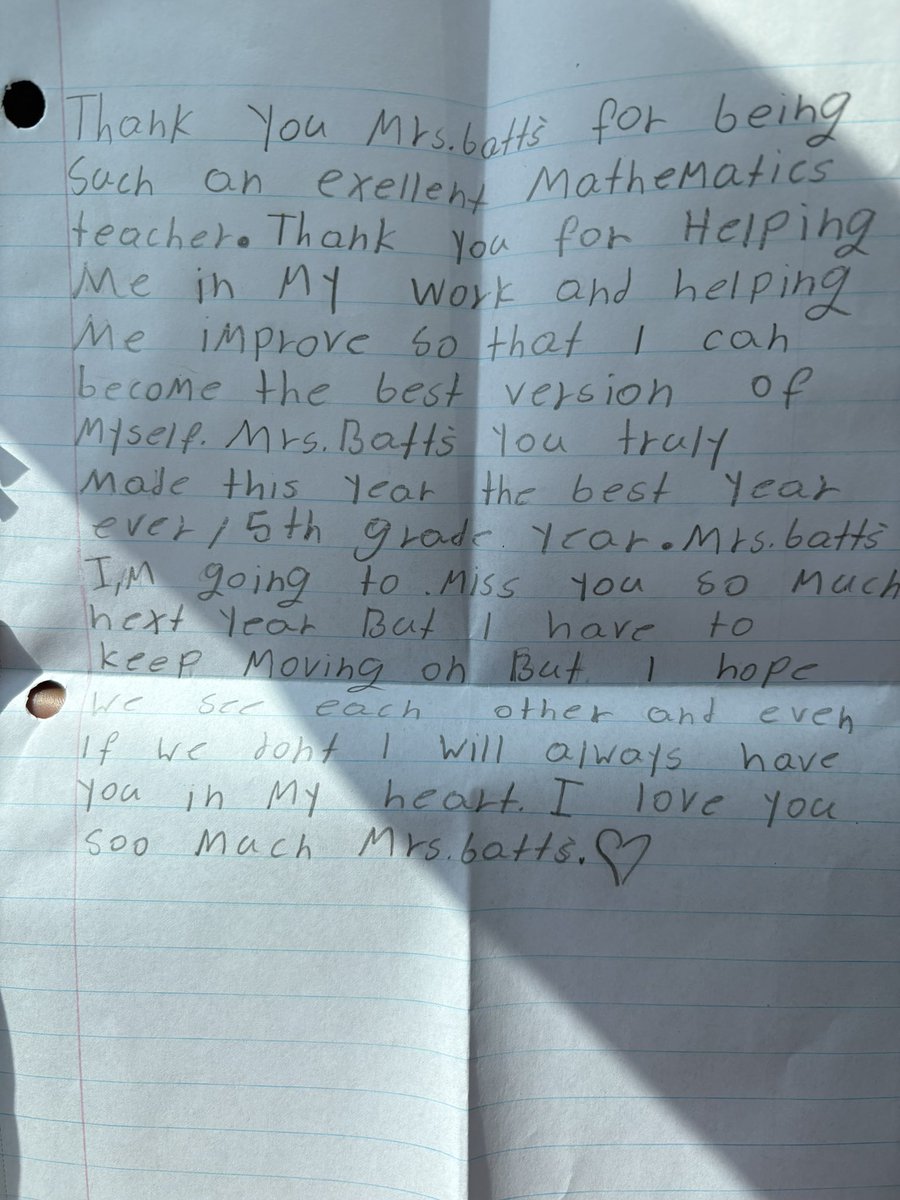 Thank You Mrs.batt's for being
Such an exellent Mathematics
teacher. Thank you for Helping
Me in My work and helping
Me improve so that I can
become the best version of
Myself. Mrs.Batt's You truly
Made this year the best year
ever / 5th grade year. Mrs.batt's
I,M going to Miss you so Much
next Year But I have to
keep Moving on But I hope
We see each other and even
If we dont I will always have
you in My heart. I love you
soo Much Mrs.batts.♡